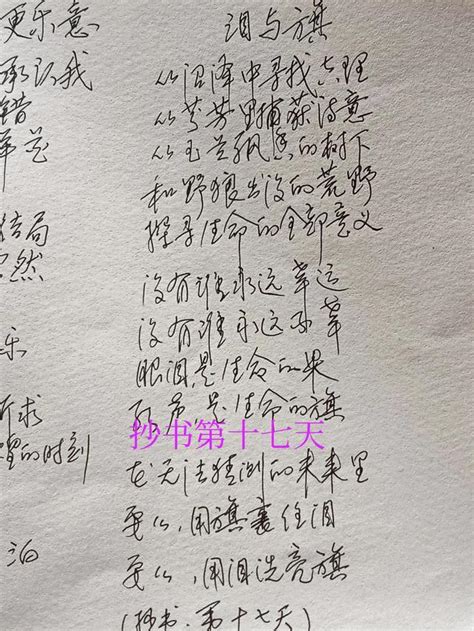 更乐意
承认我
错
结局
然
乐
所求
哩的时刻
泊
泪与旗
从沼泽中寻找真理
从芬芳里捕获诗意
从玉兰飘香的树下
和野狼出没的荒野
探寻生命的全部意义
没有谁永远幸运
没有谁永远不幸
眼泪,是生命的果
欢笑,是生命的旗
抄书第十七天
在无法猜测的未来里
要么,用旗裹住泪
要么,用泪洗亮旗
(抄书·第十七天)